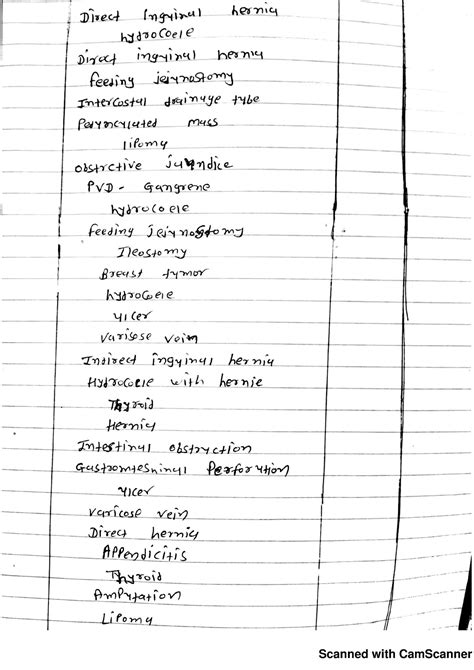 Direct Inguinal hernia
hydrocoele
Direct inguinal hernia
feeding jejunostomy
Intercostal drainage tube
Perumcylated mass
lipoma
obstrctive jaundice
PVD - Gangrene
hydrocoele
feeding jejunostomy
Ileostomy
Breast tumor
hydrocoele
ulcer
varisose vein
Indirect inguinal hernia
Hydrocoele with hernie
Thyroid
Hernia
Intestinal obstruction
Gastrointesninal Perforation
ulcer
varicose vein
Direct hernia
Appendicitis
Thyroid
Amputation
Lipoma
Scanned with CamScanner